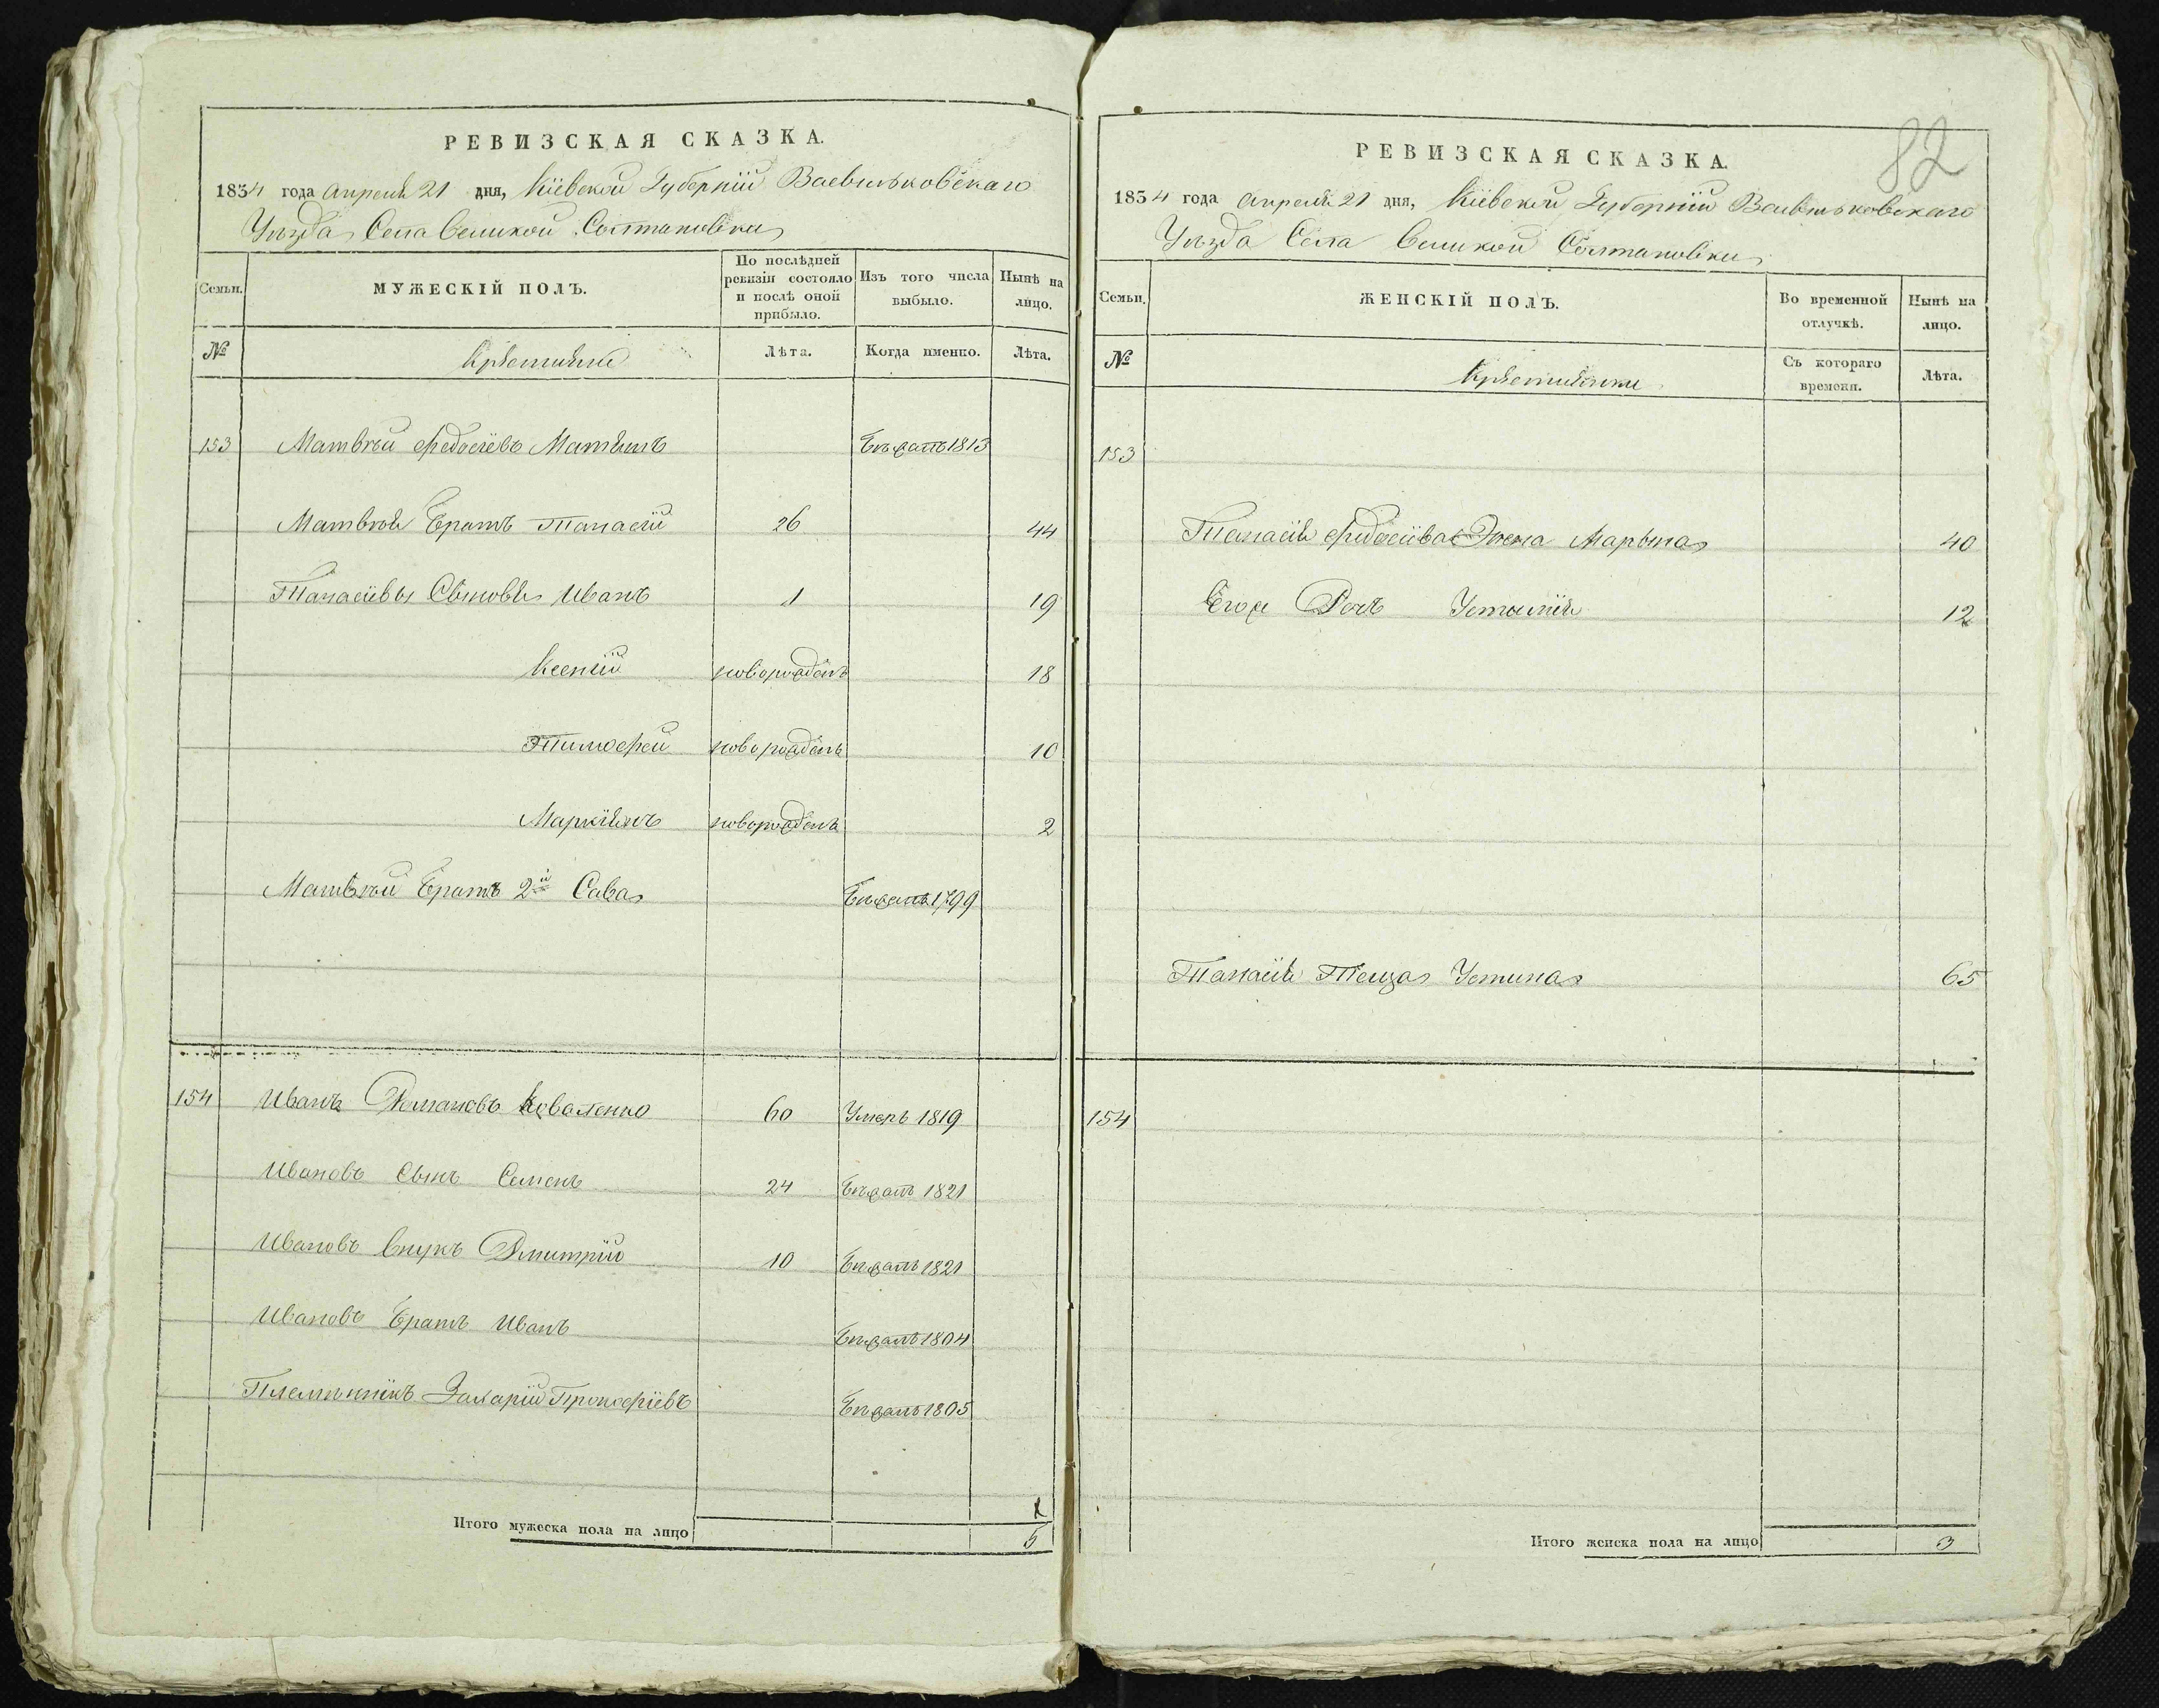 РЕВИЗСКАЯ СКАЗКА.
1834 года Апреля 21 дня, Кіевской Губерніи Васильковскаго
Уѣзда Села Великой Солтановки
Семьи.
МУЖЕСКІЙ ПОЛЪ.
По послѣдней ревизіи состояло и послѣ оной прибыло.
Изъ того числа выбыло.
Нынѣ на лицо.
№
Крѣстьяне
Лѣта.
Когда именно.
Лѣта.
153 Матвѣй Федосіевъ Бѣжалъ 1813
Матвѣя Братъ Танасій 26 44
Танасіевы Сыновья Иванъ 1 19
Ксеній новорожденъ 18
Тимофей новорожденъ 10
Маркіянъ новорожденъ 2
Матвѣй Братъ 2й Сава Бѣжалъ 1799
154 Иванъ Романовъ Коваленко 60 Умеръ 1819
Ивановъ Сынъ Семенъ 24 Бѣжалъ 1821
Ивановъ Внукъ Дмитрій 10 Бѣжалъ 1821
Ивановъ Братъ Иванъ Бѣжалъ 1804
Племѣнникъ Захарій Прокофіевъ Бѣжалъ 1805
Итого мужеска пола на лицо 5
82
РЕВИЗСКАЯ СКАЗКА.
1834 года Апреля 21 дня, Кіевской Губерніи Васильковскаго
Уѣзда Села Великой Солтановки
Семьи.
ЖЕНСКІЙ ПОЛЪ.
Во временной отлучкѣ.
Нынѣ на лицо.
№
Крѣстьянки
Съ котораго времени.
Лѣта.
153
Танасія Федосіева Жена Марына 40
Его Дочь Устинія 12
Танасія Теща Устина 65
154
Итого женска пола на лицо 3